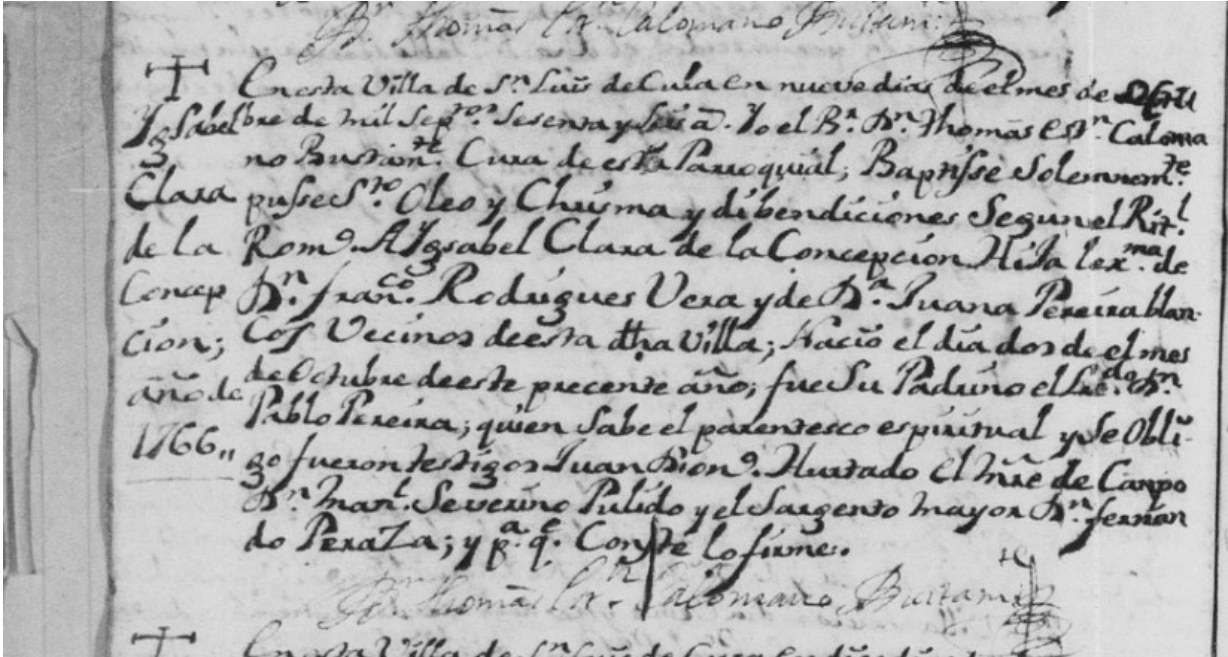 Br. Thomas Estn. Calomano Bustamte
Ygsabel
Clara
de la
Concep
cion;
año de
1766,,
En esta Villa de Sn. Luis de Cura en nueve dias de el mes de Octu
bre de mil Septos. Sesenta y Seis a. Yo el Br. Dn. Thomas Estn. Caloma
no Bustamte. Cura de esta Parroquial; Baptisse Solemnemte.
pusse Sto. Oleo y Chrisma y di bendiciones Segun el Ritl.
Romo. A Ygsabel Clara de la Concepcion Hija lexma. de
Dn. Franco. Rodrigues Vera y de Da. Juana Pereira blan-
cos Vecinos de esta dha Villa; Nacio el dia dos de el mes
de Octubre de este precente año; fue Su Padrino el Licdo. Dn.
Pablo Pereira; quien Sabe el parentesco espiritual y Se Obli-
go fueron testigos Juan Diono. Hurtado el Mre de Campo
Dn. Manl. Severino Pulido y el Sargento Mayor Dn. Fernan
do Peraza; y pa. qe. Conste lo firme.
Br. Thomas Estn. Calomano Bustamte
En esta Villa de Sn. Luis de Cura en